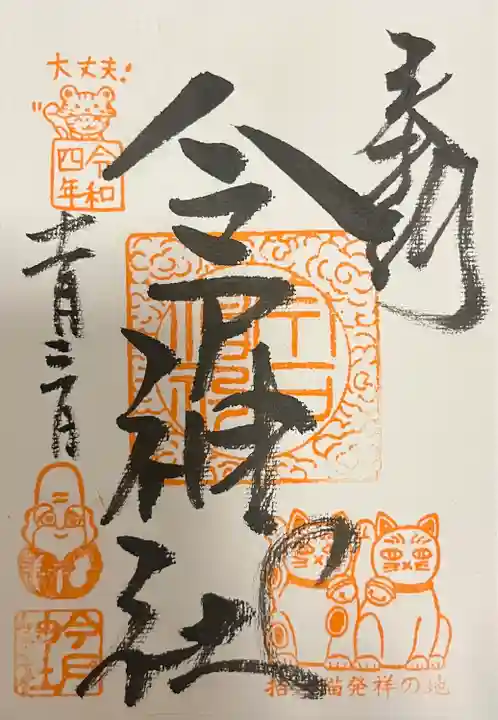 奉拝
今戸神社
大丈夫!
令和
四年
十一月
今戸
神社
招き猫発祥の地